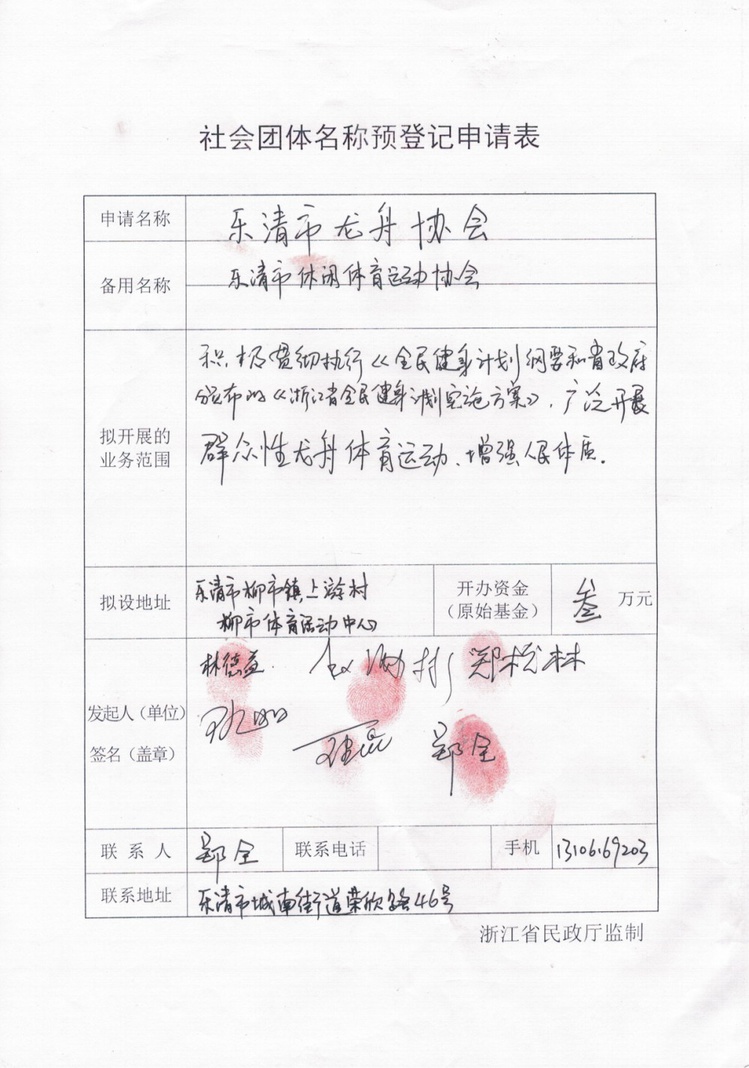 社会团体名称预登记申请表
申请名称 乐清市龙舟协会
备用名称 乐清市休闲体育运动协会
积极贯彻执行《全民健身计划纲要和省政府
颁布的《浙江省全民健身计划实施方案》，广泛开展
拟开展的
业务范围
群众性龙舟体育运动、增强人民体质.
拟设地址
乐清市柳市镇上游村
柳市体育活动中心
开办资金
(原始基金)
叁 万元
发起人(单位)
签名(盖章)
林德孟
郑松林
郑全
联系人 郑全 联系电话 手机 13106169203
联系地址 乐清市城南街道荣欣路46号
浙江省民政厅监制